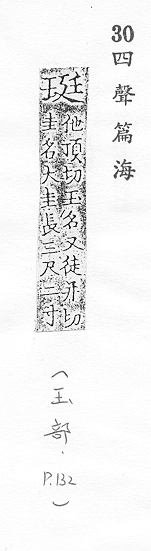 30 四聲篇海
珽
他頂切玉名又徒切
圭名大圭長三尺二寸
(玉部.P.132)